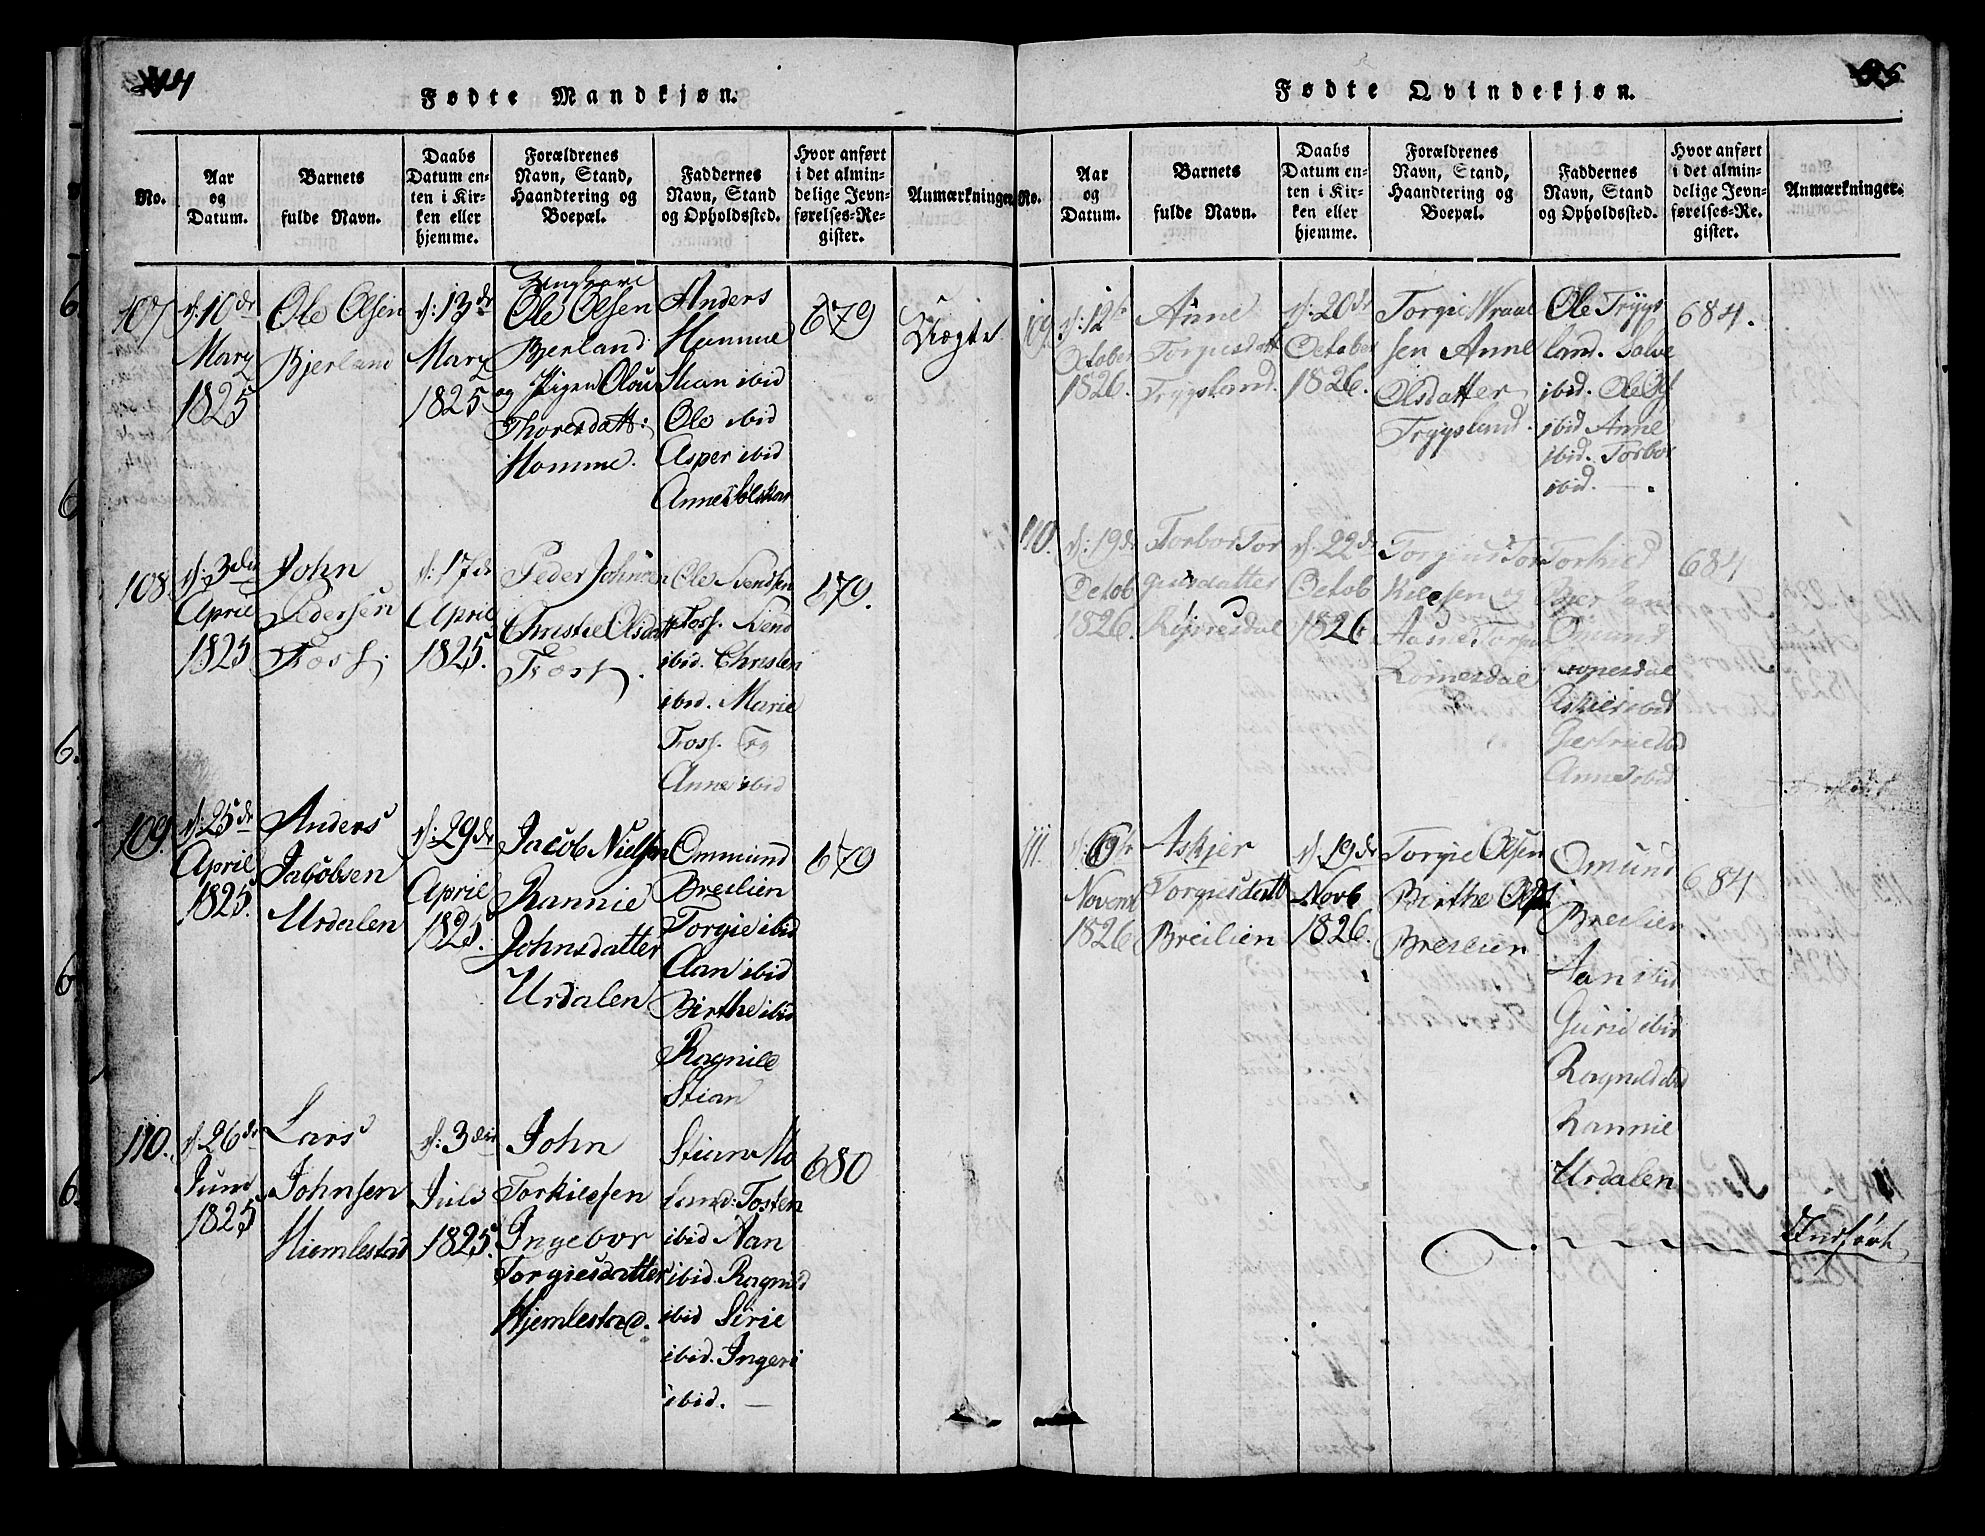 44
Fødte Mandkjøn.
No.
Aar
og
Datum.
Barnets
fulde Navn.
Daabs
Datum en-
ten i Kir-
ken eller
hjemme.
Forældrenes
Navn, Stand,
Haandtering og
Boepæl.
Faddernes
Navn, Stand
og Opholdssted.
Hvor anført
i det almin-
delige Jevn-
førelses-Re-
gister.
Anmærkninger.
107
d: 10de
Marz
1825
Ole Olsen
Bjerland
d: 13de
Marz
1825
Ungkarl
Ole Olsen
Bjerland
og Pigen Olou
Thoresdatt:
Homme.
Anders
Homme
Stian ibid
Ole ibid
Asper ibid
Anne
679
Uægte
108.
d: 3die
April
1825
John
Pedersen
Foss.
d: 17de
April
1825.
Peder Johnsen
Christie Olsdatt
Foss.
Ole Svendsen
Foss. Svend
ibid. Christen
ibid. Marie
Foss. og
Anne ibid
679.
109.
d: 25de
April
1825.
Anders
Jacobsen
Urdalen
d: 29de
April
1825.
Jacob Nielsen
Rannie
Johnsdatter
Urdalen
Ommund
Breilien
Torgie ibid
Aan ibid
Birthe ibid
Ragnild
Stian
679
110.
d. 26de
Juni
1825
Lars
Johnsen
Hiemlestad
d: 3die
Juli
1825.
John
Torkilsen
Ingebor
Torgiesdatter
Hjemlestad.
Stian Mo
land. Tosten
ibid Aan
ibid. Ragnild
ibid Sirie
ibid. Ingeri
ibid.
680
45
Fødte Qvindekjøn.
No.
Aar
og
Datum.
Barnets
fulde Navn.
Daabs
Datum en-
ten i Kir-
ken eller
hjemme.
Forældrenes
Navn, Stand,
Haandtering og
Boepæl.
Faddernes
Navn, Stand
og Opholdssted.
Hvor anført
i det almin-
delige Jevn-
førelses-Re-
gister.
Anmærkninger.
109.
d: 12te
October
1826.
Anne
Torgiesdatt
Trygsland.
d: 20de
October
1826.
Torgie Wraal
sen Anne
Olsdatter
Trygsland.
Ole Trygs
land. Salve
ibid. Ole
ibid Anne
ibid. Torbor
ibid.
684.
110.
d: 19de
Octob
1826.
Torbor Tor
giusdatter
d: 22de
Octob
1826
Torgius Tor
kilsen og
Aasne
Torkild
Bjerland
Omund
ibid
Anne ibid
684
111.
d: 6te
Novemb
1826
Askjer
Torgiesdatt
Breilien
d: 19de
Novb
1826.
Torgie Olsen
Birthe Olsd
Breilien
Omund
Breilien
Aan ibid
Guri ibid
Ragnild ibid
Rannie
Urdalen
684
Indført